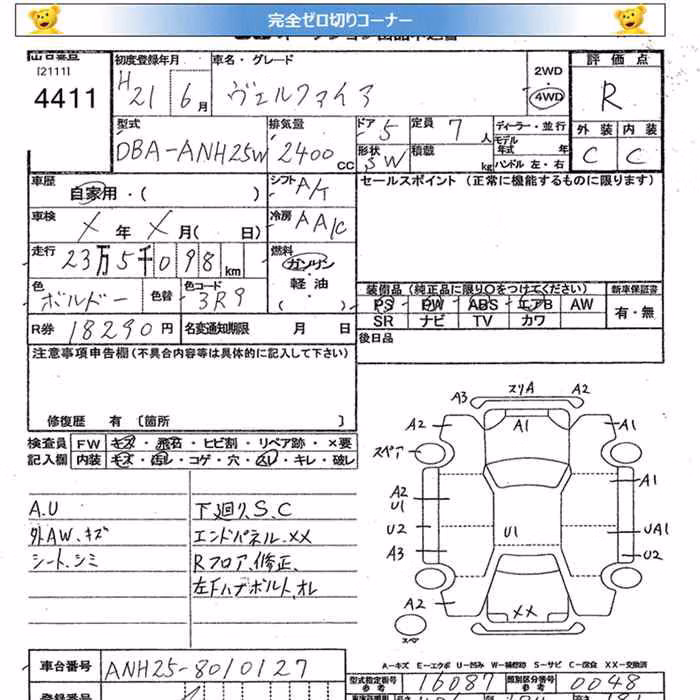 完全ゼロ切りコーナー
[2111]
4411
初度登録年月
H21 6月
車名・グレード
ヴェルファイア
2WD
4WD
評価点
R
外装 内装
C C
型式
DBA-ANH25W
排気量
2400 CC
ドア 5
形状 SW
定員 7 人
積載 kg
ディーラー・並行
モデル年式 年
ハンドル 左・右
車歴
自家用・( )
シフト A/T
セールスポイント (正常に機能するものに限ります)
車検
X 年 X 月( 日)
冷房 AA/C
走行
23万5千098 km
燃料
ガソリン
軽油
( ・ )
色
ボルドー
色替
色コード
3R9
装備品 (純正品に限り○をつけてください)
新車保証書
PS PW ABS エアB AW
SR ナビ TV カワ
有・無
R券 18290円
名変通知期限 月 日
後日品
注意事項申告欄(不具合内容等は具体的に記入して下さい)
修復歴 有 〔箇所 〕
検査員 FW キズ・飛石・ヒビ割・リペア跡・×要
記入欄 内装 キズ・汚レ・コゲ・穴・スレ・キレ・破レ
A.U
外AW.キズ
シート.シミ
下廻り.S.C
エンドパネル.XX
Rフロア.修正.
左Fハブボルト.オレ
A3 スリA A2
A2 A1 A1
スペア
A2 U1 A1
U2 U1 UA1
A3 U2
A2 XX A2
スペ
A-キズ E-エクボ U-凹み W-補修跡 S-サビ C-腐食 XX-交換済
車台番号 ANH25-8010127
型式指定番号 参考 16087
類別区分番号 参考 0048